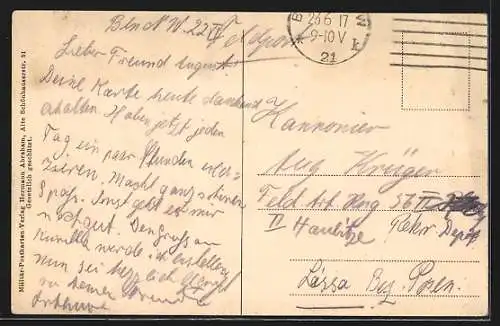 Bln N.W. 22/6
Feldpost
B
26 6 17
9-10 V
* 21 k
Lieber Freund August
Deine Karte heute dankend
erhalten. Haben jetzt jeden
Tag ein paar Stunden exer-
zieren. Macht ganz schönen
Spass. Sonst geht es mir
Den Gruss an
werde ich bestellen
nun sei herzlich gegrüßt
von Deinem Freunde
Arthur
Kannonier
Aug Krüger
Feld Art. Reg 56 II
II Haubitze Rekr. Depot
Lissa Bez. Posen.
Militär-Postkarten-Verlag Hermann Abraham, Alte Schönhauserstr. 51
Gesetzlich geschützt.